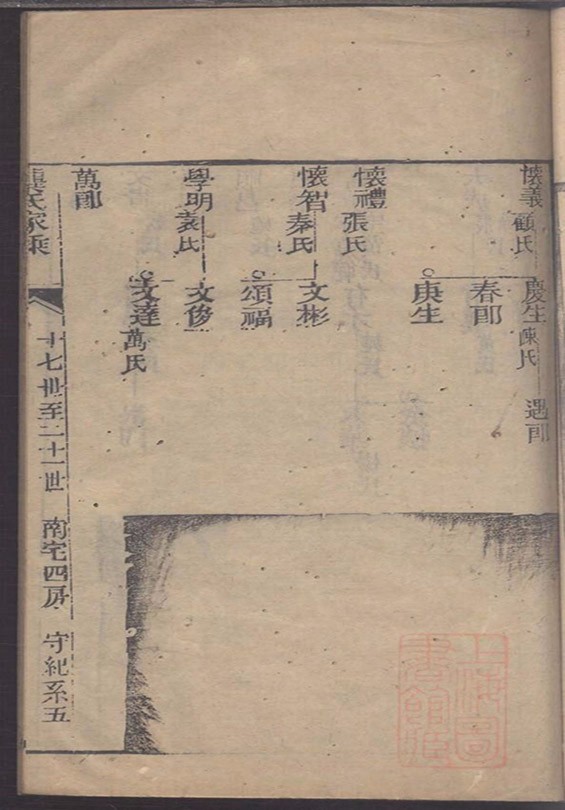 懷義 顧氏 慶生 陳氏 遇郎
春郎
庚生
懷禮 張氏
懷智 秦氏 文彬
頌福
學明 袁氏 文俊
文達 萬氏
萬郎
龔氏家乘 十七世至二十一世 南宅四房 守紀系五
上海圖書館藏